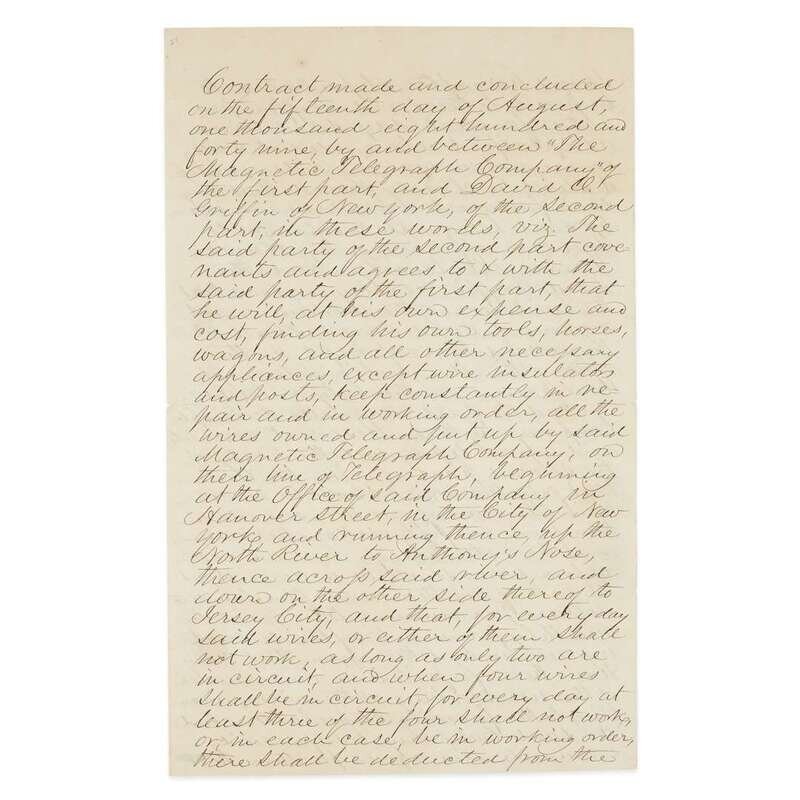 Contract made and concluded
on the fifteenth day of August,
one thousand eight hundred and
forty nine, by and between "The
Magnetic Telegraph Company," of
the first part, and David
Griffin of New York, of the second
part, in these words, viz. The
said party of the second part cove
nants and agrees to & with the
said party of the first part, that
he will, at his own expense and
cost, finding his own tools, horses,
wagons, and all other necessary
appliances, except wire insulators
and posts, keep constantly in re-
pair and in working order, all the
wires owned and put up by said
Magnetic Telegraph Company, on
their line of Telegraph, beginning
at the Office of said Company in
Hanover Street, in the City of New
York, and running thence, up the
North River to Anthony's Nose,
thence across said river, and
down on the other side thereof to
Jersey City, and that, for every day
said wires, or either of them shall
not work, as long as only two are
in circuit, and when four wires
shall be in circuit, for every day at
least three of the four shall not work,
or in each case, be in working order,
there shall be deducted from the